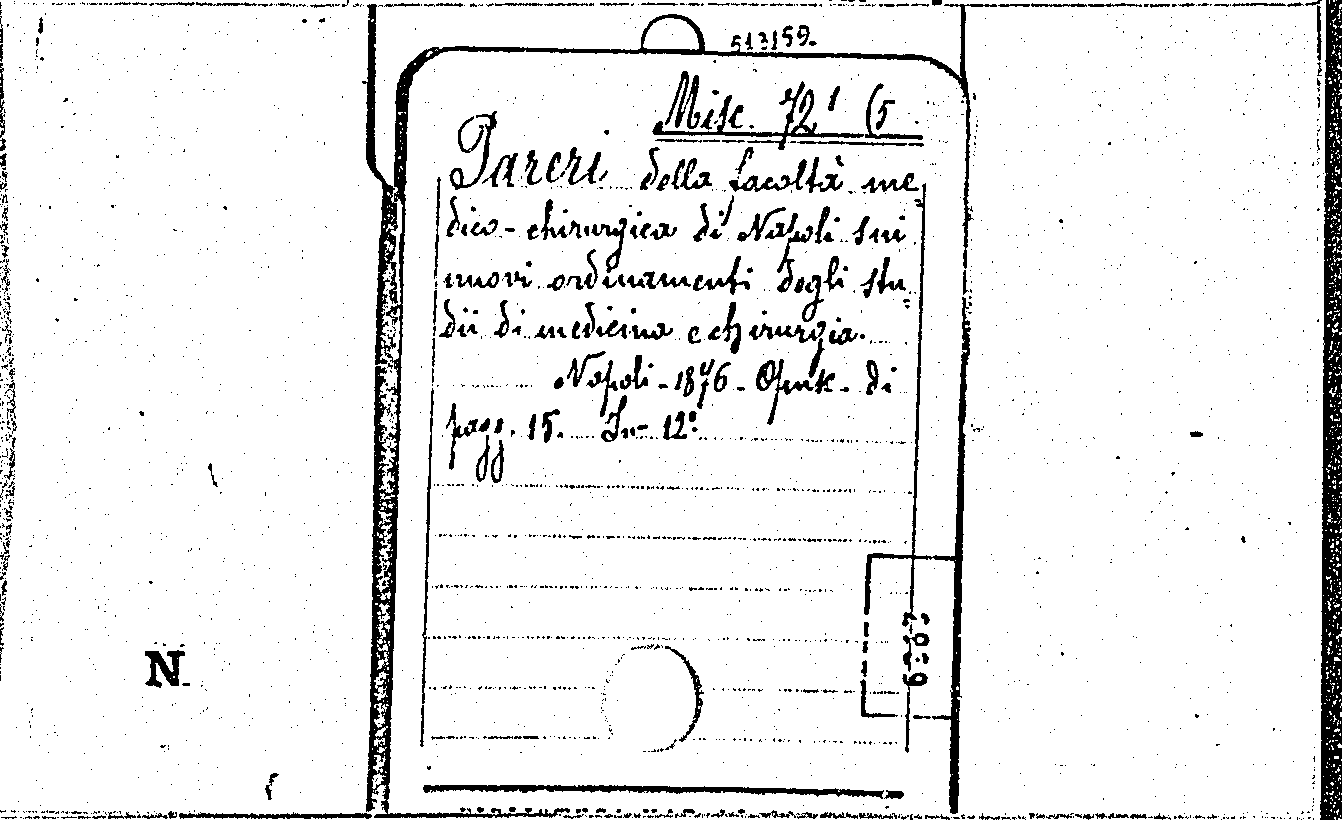 513159.
Misc. 72¹ (5
Pareri della facoltà me„
dico-chirurgica di Napoli sui
nuovi ordinamenti degli stu„
dii di medicina e chirurgia.
Napoli - 1876 - Opusc. di
pagg. 15. In-12°.
N.